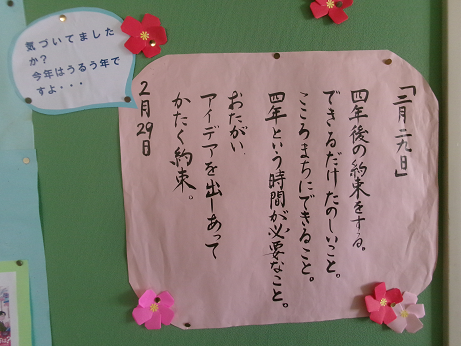 気づいてました
か?
今年はうるう年で
すよ・・・
「二月二九日」
四年後の約束をする。
できるだけたのしいこと。
こころまちにできること。
四年という時間が必要なこと。
おたがい、
アイデアを出しあって
かたく約束。
2月29日